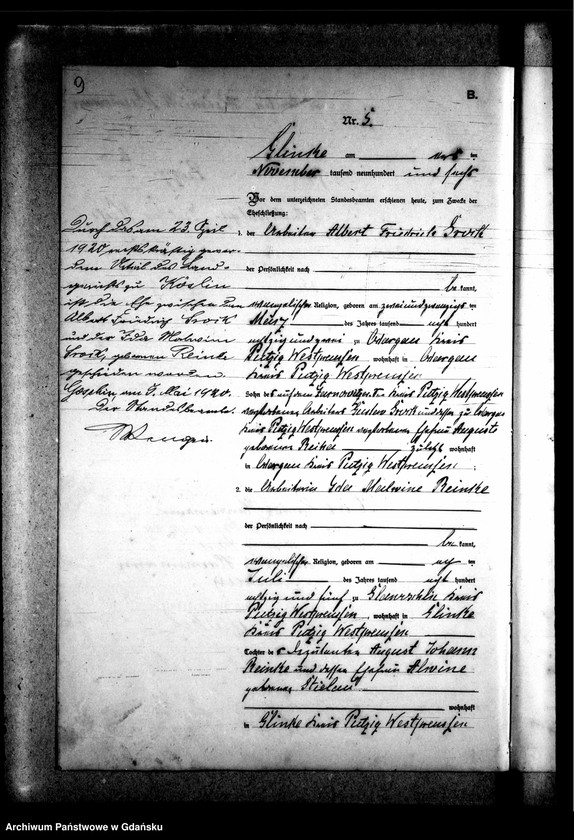 9
B.
Nr. 5.
Glinke am
November tausend neunhundert und sechs
Vor dem unterzeichneten Standesbeamten erschienen heute, zum Zwecke der
Eheschließung:
1. der Arbeiter Albert Friedrich
der Persönlichkeit nach
be kannt,
evangelischer Religion, geboren am zweiundzwanzigsten
März des Jahres tausend acht hundert
achtzig und zwei zu Kreis
Putzig Westpreussen, wohnhaft in
Kreis Putzig Westpreussen
Sohn des auf dem Kreis Putzig Westpreussen
verstorbenen Arbeiters Gustav und dessen zu
Kreis Putzig Westpreussen verstorbenen Ehefrau Auguste
geborenen zuletzt wohnhaft
in Kreis Putzig Westpreussen;
2. die Arbeiterin Ida Malwine Reinke
der Persönlichkeit nach
be kannt,
evangelischer Religion, geboren am
Juli des Jahres tausend acht hundert
achtzig und fünf zu Kreis
Putzig Westpreussen, wohnhaft in Glinke
Kreis Putzig Westpreussen
Tochter des Deputanten August Johann
Reinke und dessen Ehefrau Alwine
geborenen
wohnhaft
in Glinke Kreis Putzig Westpreussen
Durch das am 23. April
1920 rechtskräftig gewor-
dene Urteil des Land-
gerichts zu Köslin
ist die Ehe zwischen dem
Albert Friedrich
und der Ida Malwine
geborenen Reinke
geschieden worden.
am 8. Mai 1920.
Der Standesbeamte.
Archiwum Państwowe w Gdańsku